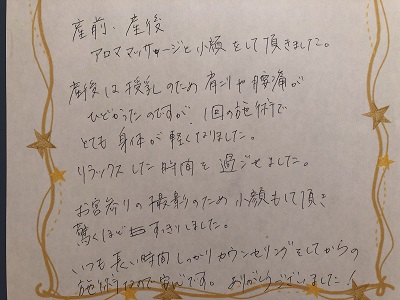 産前、産後
アロママッサージと小顔をして頂きました。
産後は授乳のため肩こりや腰痛が
ひどかったのですが、1回の施術で
とても身体が軽くなりました。
リラックスした時間を過ごせました。
お宮参りの撮影のため小顔もして頂き
驚くほどすっきりしました。
いつも長い時間しっかりカウンセリングをしてからの
施術なので安心です。ありがとうございました!